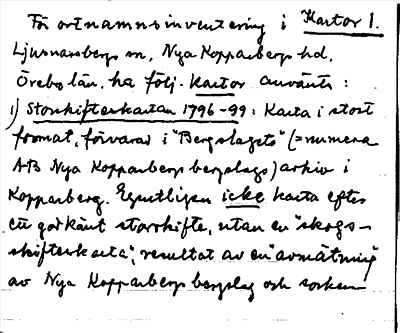 För ortnamnsinventering i Kartor 1.
Ljusnarsbergs sn, Nya Kopparbergs hd,
Örebro län, ha följ. kartor använts:
1) Storskifteskartan 1796-99: Karta i stort
format, förvarad i "Bergslagets" (=numera
AB Nya Kopparbergs bergslags) arkiv i
Kopparberg. Egentligen icke karta efter
ett godkänt storskifte, utan en "skogs-
skifteskarta", resultat av en "avmätning"
av Nya Kopparbergs bergslag och socken